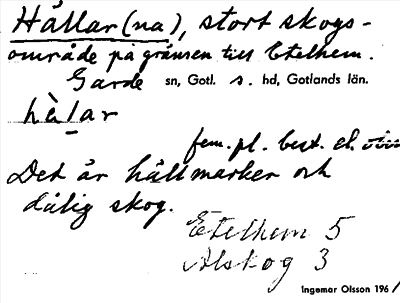 Hållar(na), stort skogs-
område på gränsen till Etelhem.
Garde sn, Gotl. s. hd, Gotlands län.
hè̱lar
fem. pl. best. el.
Det är hällmarker och
dålig skog.
Etelhem 5
Alskog 3
Ingemar Olsson 196/